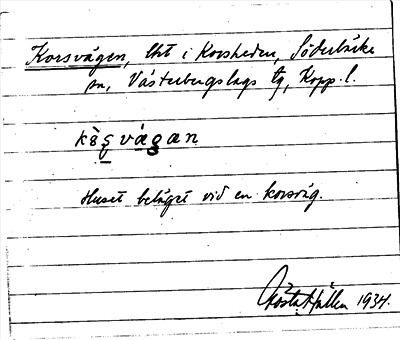 Korsvägen, lht i Korsheden, Söderbärke
sn, Västerbergslags tg, Kopp. l.
kå̀s̱vágan
Huset beläget vid en korsväg.
Gösta Hallén 1934.